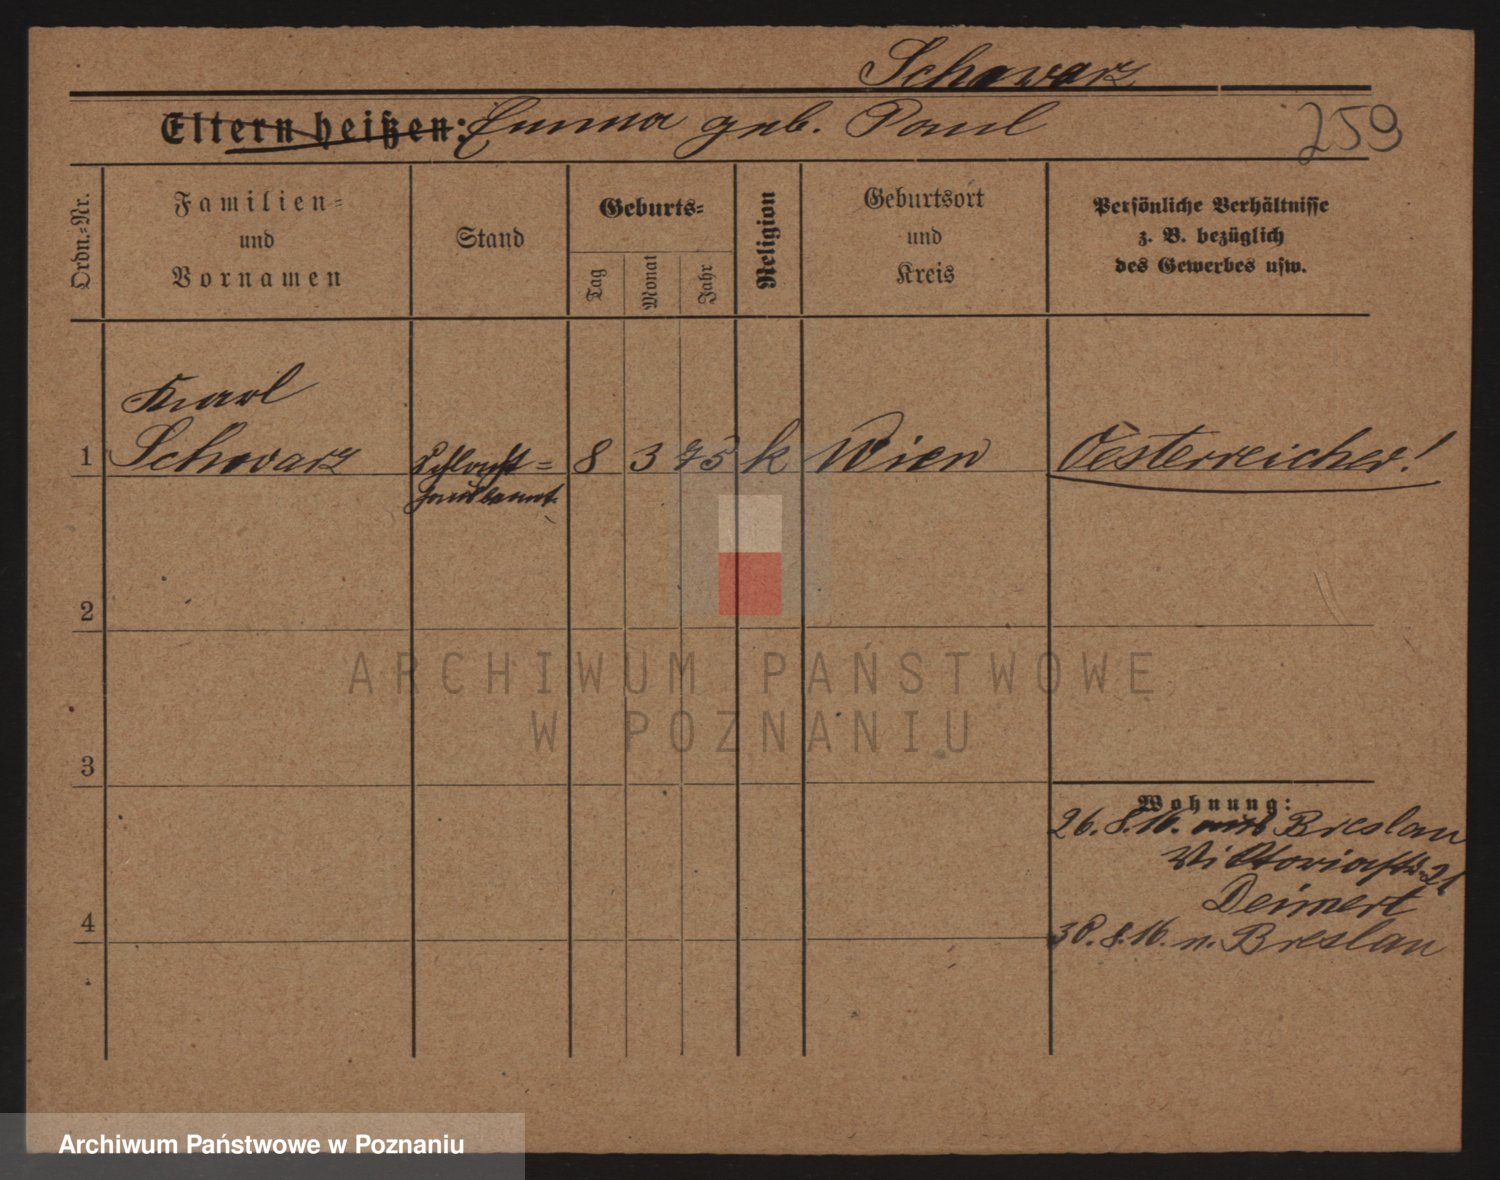 Schwarz
Eltern heißen: Emma geb. Paul
259
Ordn.-Nr.
Familien-
und
Vornamen
Stand
Geburts-
Tag
Monat
Jahr
Religion
Geburtsort
und
Kreis
Persönliche Verhältnisse
z. B. bezüglich
des Gewerbes usw.
Karl
1 Schwarz Schlacht- 8 3 75 k Wien Oesterreicher!
2
ARCHIWUM PAŃSTWOWE
W POZNANIU
3
Wohnung:
26.8.16. aus Breslau
Viktoriastr. 21
Deimert
4
30.8.16. n. Breslau
Archiwum Państwowe w Poznaniu